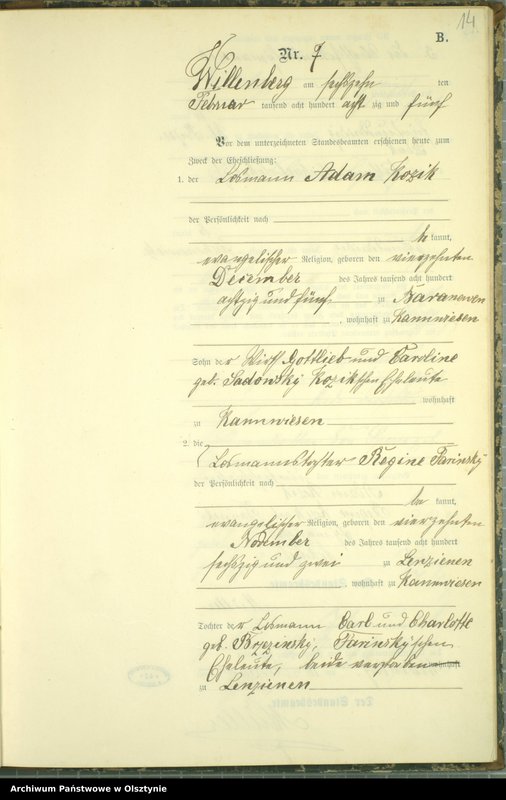 14
B.
Nr. 7
Willenberg am sechszehn ten
Februar tausend acht hundert acht zig und fünf
Vor dem unterzeichneten Standesbeamten erschienen heute zum
Zweck der Eheschließung:
1. der Losmann Adam Kozik
der Persönlichkeit nach
be kannt,
evangelischer Religion, geboren den vierzehnten
December des Jahres tausend acht hundert
und fünf zu
, wohnhaft zu Kannwiesen
Sohn der Wirth Gottlieb und Caroline
geb. Sadowsky Kozikschen Eheleute
wohnhaft
zu Kannwiesen
2. die
Losmannstochter Regine Parinsky
der Persönlichkeit nach
be kannt,
evangelischer Religion, geboren den vierzehnten
November des Jahres tausend acht hundert
sechszig und zwei zu Lenzienen
, wohnhaft zu Kannwiesen
Tochter der Losmann Carl und Charlotte
geb. Brzezinski, Parinsky'schen
Eheleute, beide verstorben wohnhaft
zu Lenzienen
Archiwum Państwowe w Olsztynie